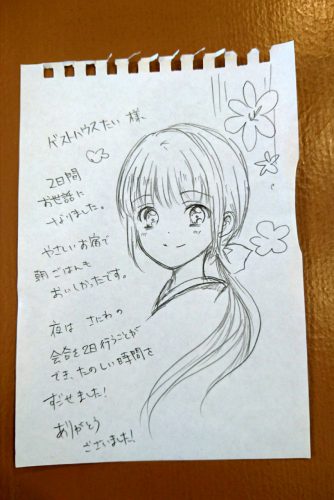 ゲストハウスたい 様、
2日間
お世話に
なりました。
やさしいお宿で
朝ごはんも
おいしかったです。
夜は さにわの
会合を2日行うことが
でき、たのしい時間を
すごせました!
ありがとう
ございました!